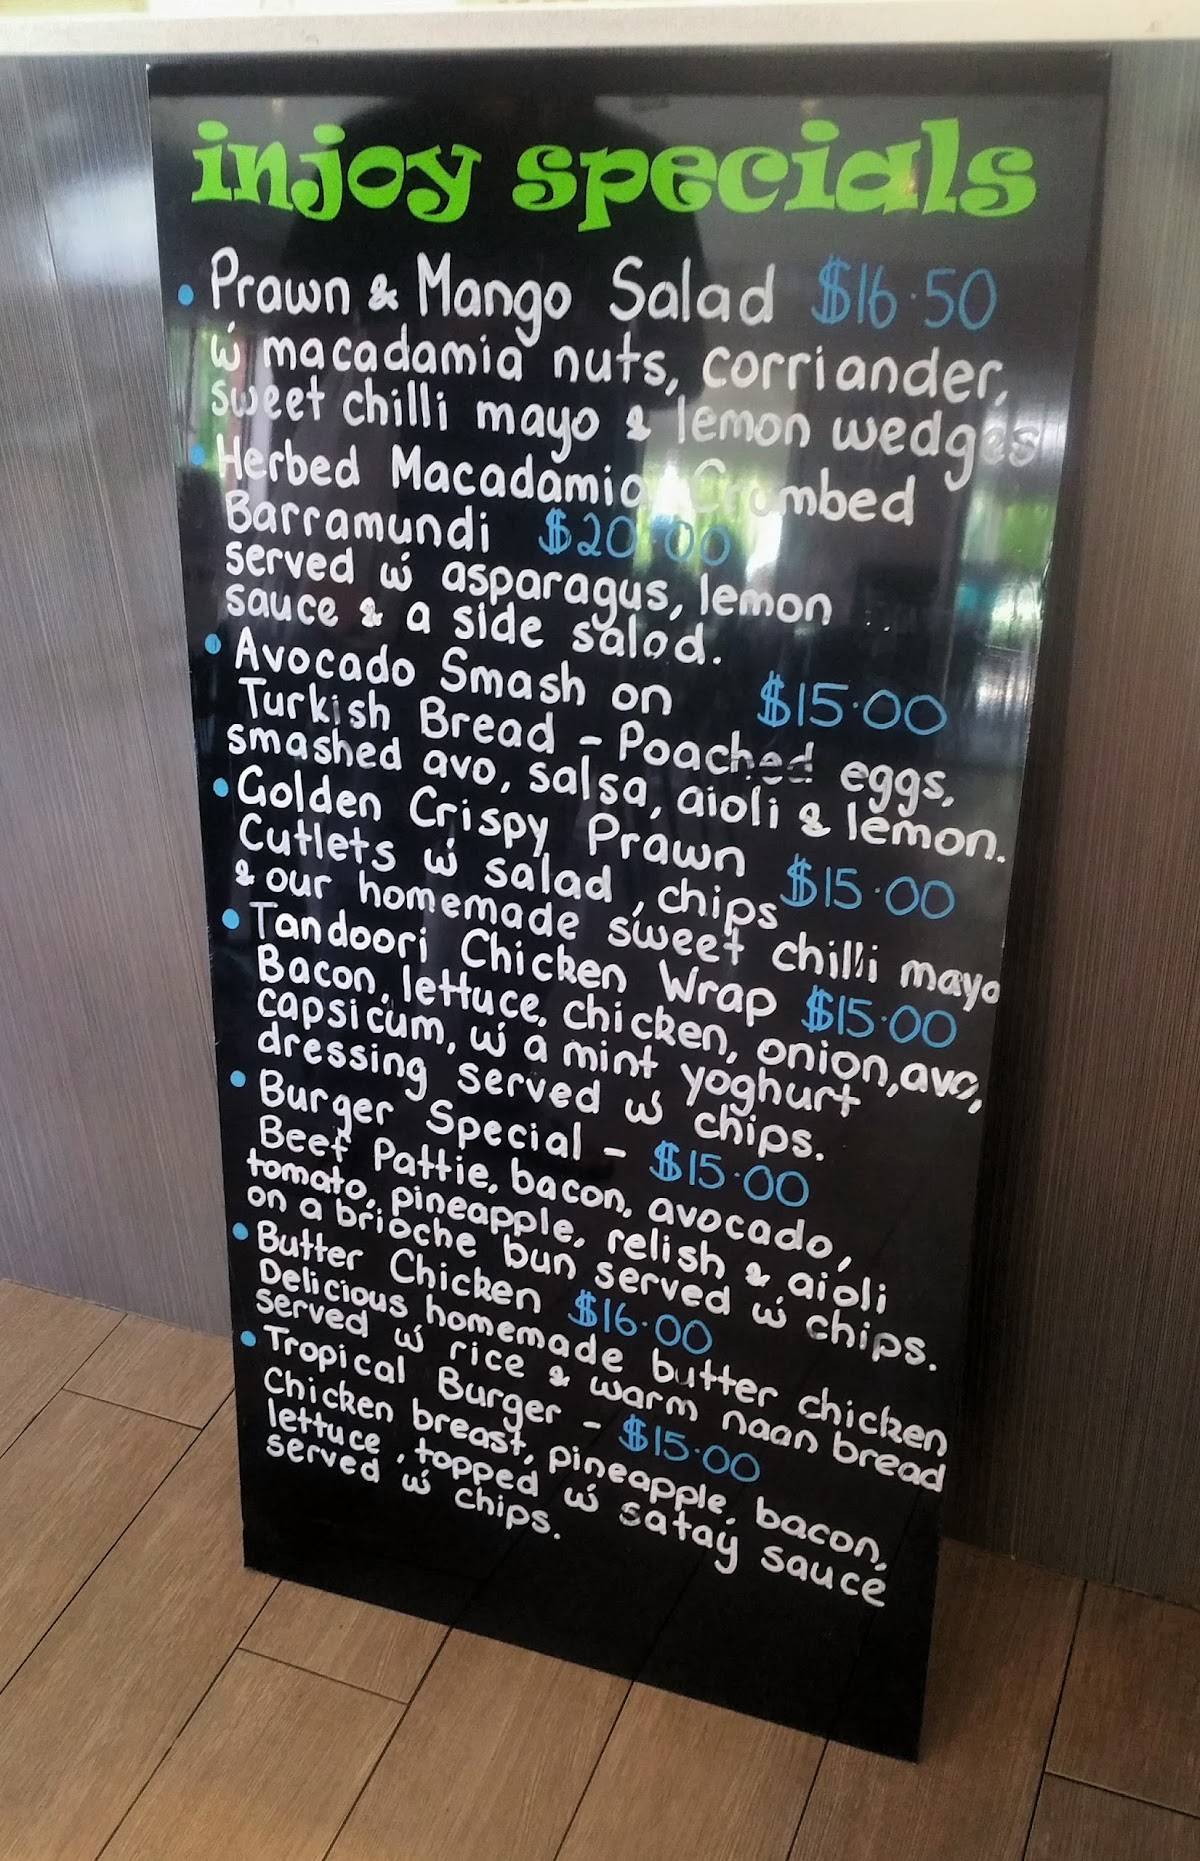 injoy specials
• Prawn & Mango Salad $16.50
w macadamia nuts, corriander,
sweet chilli mayo & lemon wedges
• Herbed Macadamia Crumbed
Barramundi $20.00
served w asparagus, lemon
sauce & a side salad.
• Avocado Smash on $15.00
Turkish Bread - Poached eggs,
smashed avo, salsa, aioli & lemon.
• Golden Crispy Prawn $15.00
Cutlets w salad, chips
& our homemade sweet chilli mayo
• Tandoori Chicken Wrap $15.00
Bacon, lettuce, chicken, onion, avo,
capsicum, w a mint yoghurt
dressing served w chips.
• Burger Special - $15.00
Beef Pattie, bacon, avocado,
tomato, pineapple, relish & aioli
on a brioche bun served w chips.
• Butter Chicken $16.00
Delicious homemade butter chicken
served w rice & warm naan bread
• Tropical Burger - $15.00
Chicken breast, pineapple, bacon,
lettuce, topped w satay sauce
served w chips.